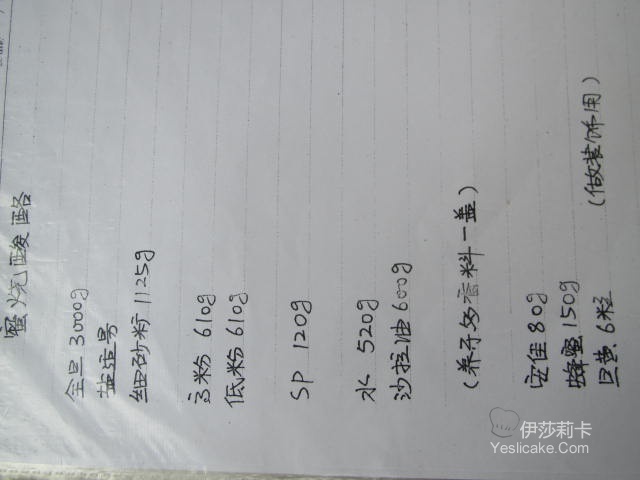 蜜烧酸酪
全旦 3000g
盐适号
细砂粉 1125g
高粉 610g
低粉 610g
SP 120g
水 520g
沙拉油 600g
(养乐多香料一盖)
安佳 80g
蜂蜜 150g
旦黄 6粒
(做装饰用)
伊莎莉卡
Yeslicake.Com